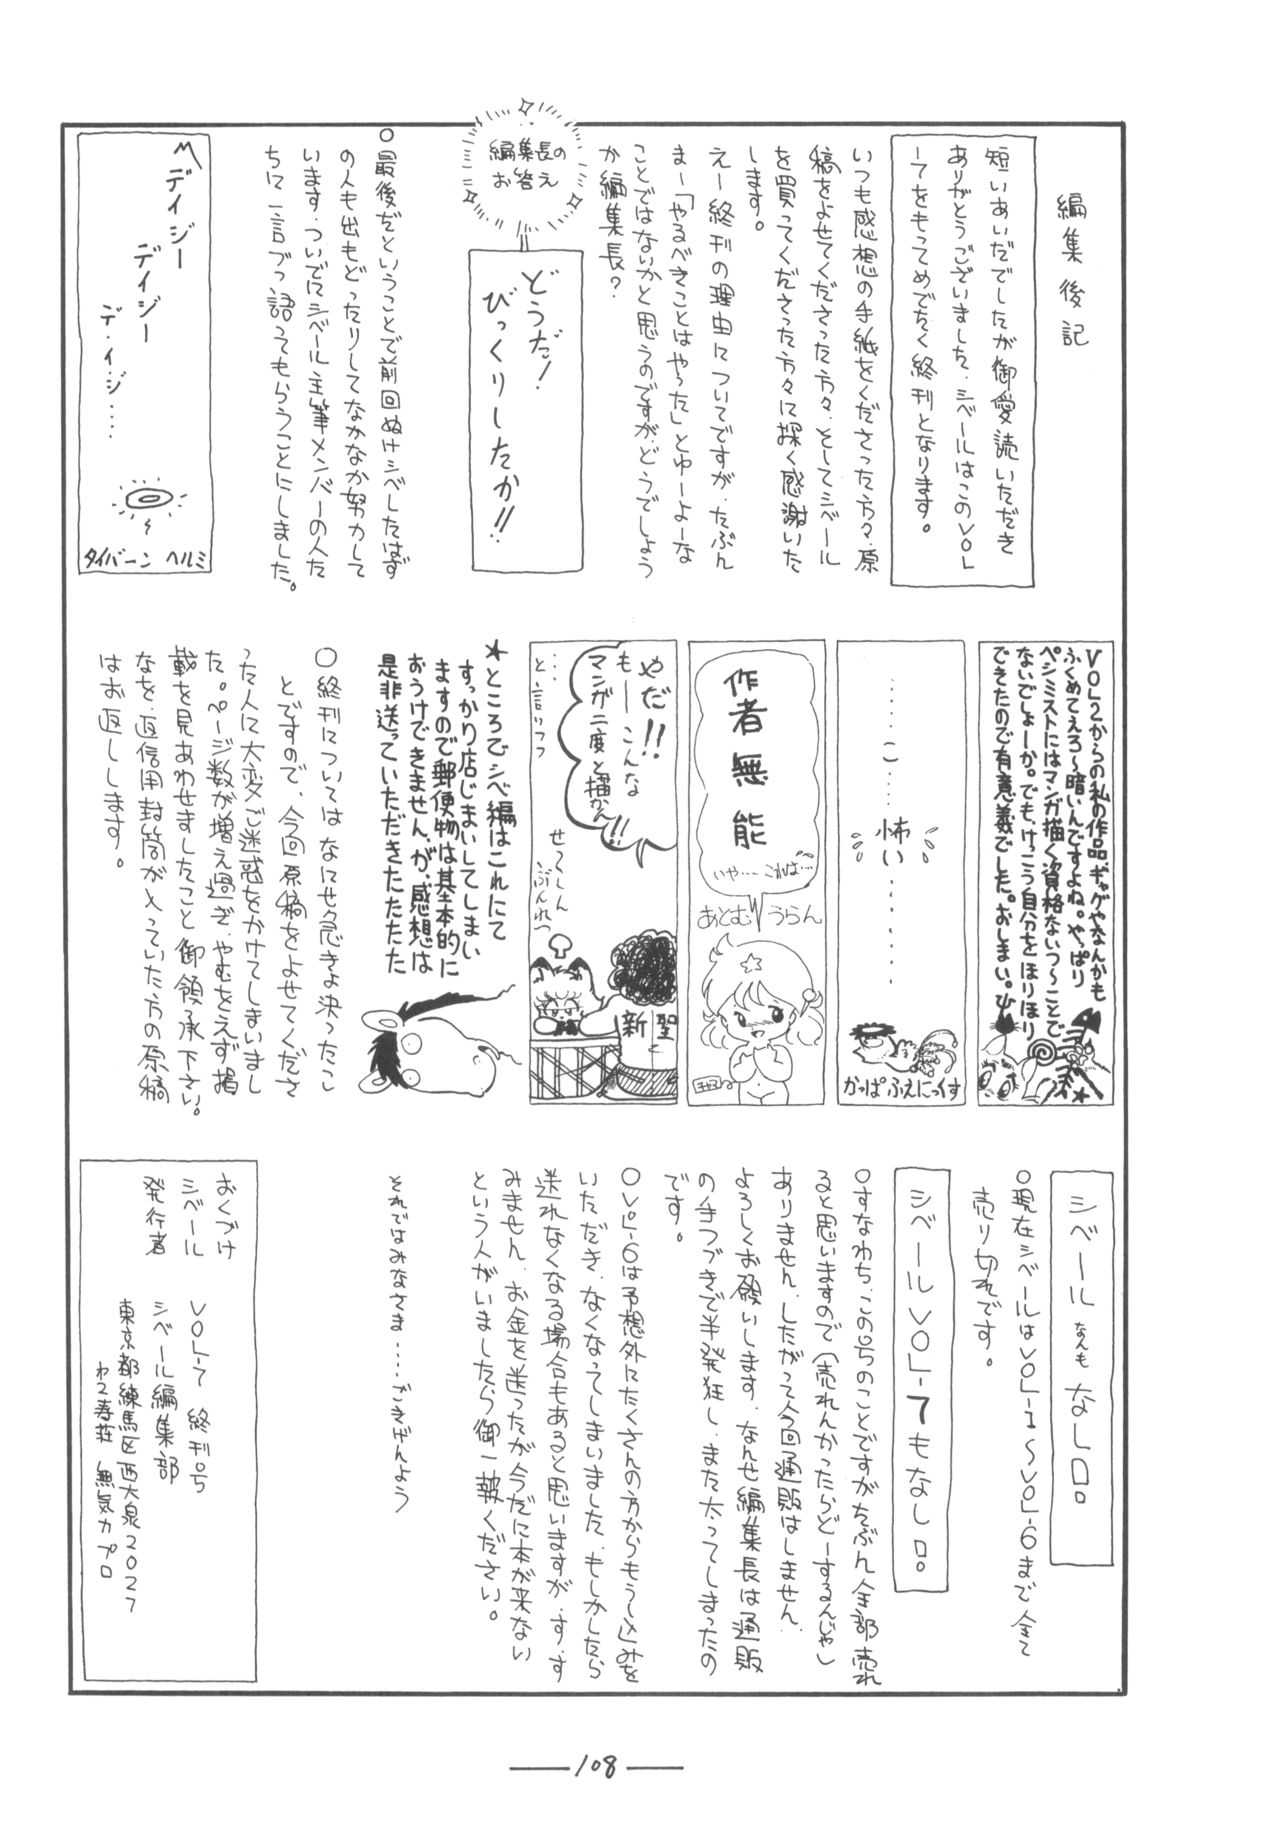 編集後記
短いあいだでしたが御愛読いただき
ありがとうございました．シベールはこのVOL
ー7をもってめでたく終刊となります。
いつも感想の手紙をくださった方々、原
稿をよせてくださった方々、そしてシベール
を買ってくださった方々に深く感謝いた
します。
えー終刊の理由についてですが、たぶん
まー「やるべきことはやった」とゆーよーな
ことではないかと思うのですが、どうでしょう
か編集長？
編集長の
お答え
どうだ！
びっくりしたか!!
○最後だということで前回ぬけシベしたはず
の人も出もどったりしてなかなか努力して
います．ついでにシベール主筆メンバーの人た
ちに一言づつ語ってもらうことにしました。
デイジー
デイジー
デ・イ・ジ・・・・
タイバーン ヘルミ
VOL2からの私の作品、ギャグやなんかも
ふくめてえろ〜暗いんですよね。やっぱり
ペシミストにはマンガ描く資格ないつ〜ことで
ないでしょーか。でも、けっこう自分をほりほり
できたので有意義でした。おしまい。
・・・・・・こ・・・・・・
怖い
かっぱ ふぇにっくす
作者無能
いや・・・これは・・・
あとむ うらん
やだ!!
もーーこんな
マンガ二度と
描かん!!
・・・と言いつつ
せーしん
ぶんれつ
新聖
★ところでシベ編はこれにて
すっかり店じまいしてしまい
ますので郵便物は基本的に
おうけできませんが、感想は
是非送っていただきたたたた
○終刊については なにせ急きょ決ったこ
とですので、今回原稿をよせてくださ
った人に大変ご迷惑をかけてしまいまし
た。ページ数が増え過ぎ、やむをえず掲
載を見あわせましたこと御領承下さい。
なを、返信用封筒が入っていた方の原稿
はお返しします。
シベールなんもなし□。
○現在シベールはVOL-1〜VOL-6まで全て
売り切れです。
シベールVOL-7もなし□。
○すなわち、この号のことですがたぶん全部売れ
ると思いますので（売れんかったらどーするんじゃ）
ありません．したがって今回通販はしません．
よろしくお願いします．なんせ編集長は通販
の手つづきで半発狂し、また太ってしまったの
です。
○VOL-6は予想外にたくさんの方からもうし込みを
いただき、なくなってしまいました．もしかしたら
送れなくなる場合もあると思いますが、す、す
みません．お金を送ったが今だに本が来ない
という人がいましたら御一報ください。
それではみなさま・・・・ごきげんよう
おくづけ
シベール VOL-7 終刊号
発行者 シベール編集部
東京都練馬区西大泉2027
わこ寿荘 無気力プロ
108